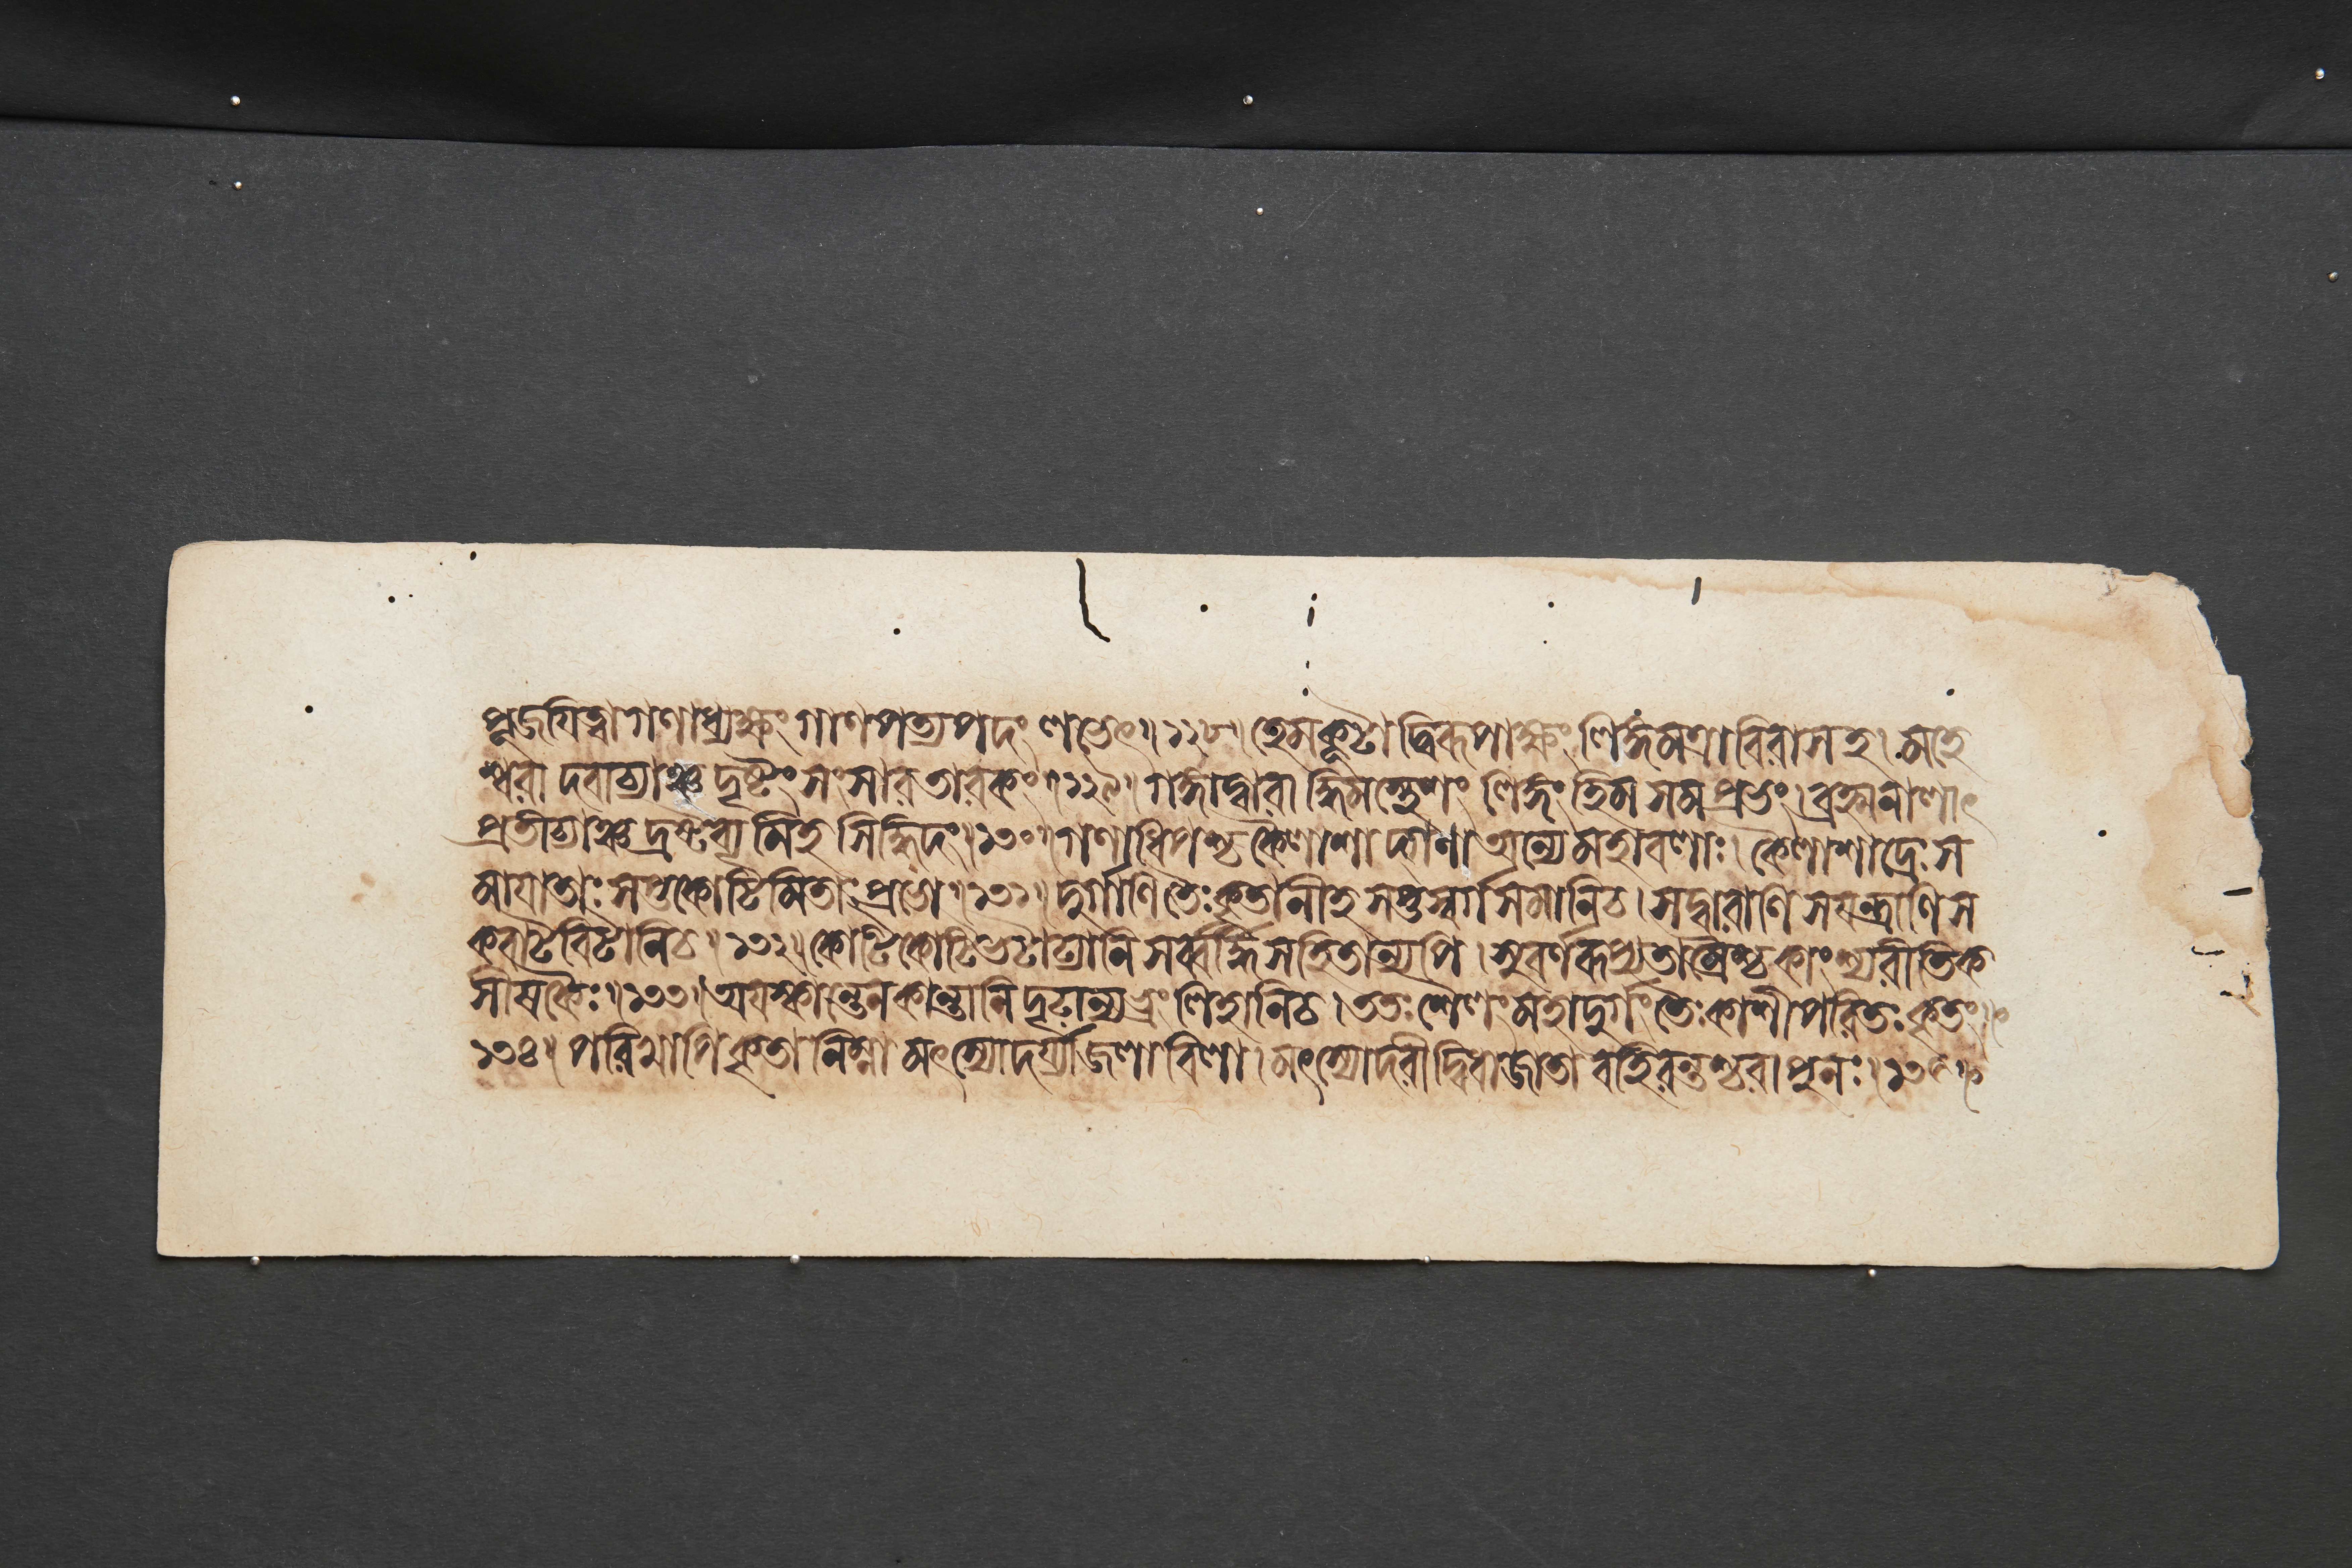 পূজয়িত্বা গণাধ্যক্ষং গাণপত্যপদং লভেৎ॥১২৮॥ হেমকূটাদ্বিরূপাক্ষং লিঙ্গমত্রাবিরাসহ। মহে
শ্বরাদবাচ্যাঞ্চ দৃষ্টং সংসারতারকং॥১২৯॥ গঙ্গাদ্বারাদ্ধিমস্থেশং লিঙ্গং হিমসমপ্রভং। ব্রহ্মনালাৎ
প্রতীচ্যাঞ্চ দ্রষ্টব্যমিহ সিদ্ধিদং॥১৩০॥ গণাধিপশ্চ কৈলাশাদ্গণা অন্যে মহাবলাঃ। কৈলাশাদ্রেঃ স
মায়াতাঃ সপ্তকোটিমিতাঃ প্রভো॥১৩১॥ দুর্গাণি তৈঃ কৃতানীহ সপ্তস্বর্গসমানি চ। সদ্বারাণি সযন্ত্রাণি স
কবাটবিটানি চ॥১৩২॥ কোটিকোটিভটাঢ্যানি সর্ব্বর্দ্ধিসহিতান্যপি। সুবর্ণরূপ্যতাম্রৈশ্চ কাংস্যরীতিক
সীষকৈঃ॥১৩৩॥ অয়স্কান্তেন কান্তানি দৃঢান্যভ্রংলিহানি চ। ততঃ শৈলং মহাদুর্গং তৈঃ কাশীপরিতঃ কৃতং॥
১৩৪॥ পরিখাপি কৃতা নিম্না মৎস্যোদর্য্যাজলাবিলা। মৎস্যোদরী দ্বিধা জাতা বহিরন্তশ্চরা পুনঃ॥১৩৫॥